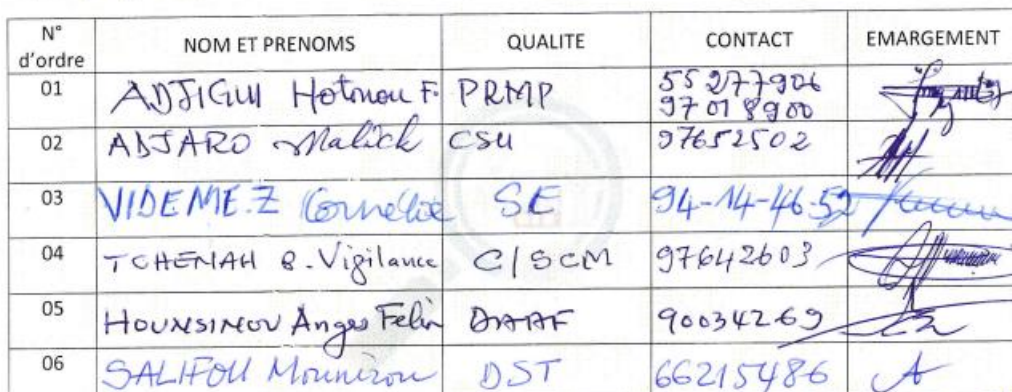 N° d'ordre NOM ET PRENOMS QUALITE CONTACT EMARGEMENT
01 ADJIGUI Hotonou F. PRMP 55277906
97018900
02 ADJARO Malick CSU 97652502
03 VIDEME.Z Cornélie SE 94-14-46-52
04 TCHENAH B. Vigilance C/SCM 97642603
05 HOUNSINOU Anges Felix DAAF 90034269
06 SALIFOU Mounirou DST 66215486